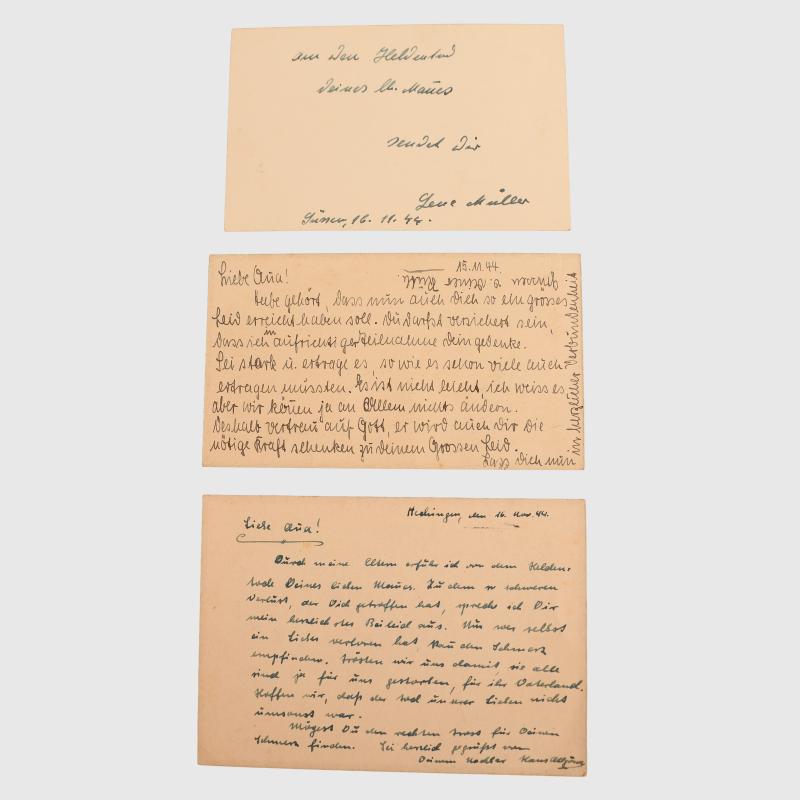 an den Heldentod
deines lb. Mañes
sendet dir
Lene Müller
Süssen, 16. 11. 44.
15.11.44.
Liebe Aña!
Habe gehört, dass nun auch Dich so ein grosses
Leid erreicht haben soll. Du darfst versichert sein,
dass ich in aufrichtiger Teilnahme dein gedenke.
Sei stark u. ertrage es, so wie es schon viele auch
ertragen mussten. Es ist nicht leicht, ich weiss es
aber wir köñen ja an Allem nichts ändern.
Deshalb vertrau auf Gott, er wird auch dir die
nötige Kraft schenken zu deinem Grossen Leid.
Lass dich nun
in herzlicher Verbundenheit
grüssen v. deiner
Hechingen, den 16. Nov. 44.
Liebe Aña!
Durch meine Eltern erfuhr ich von dem Helden-
tode Deines lieben Mañes. Zu dem so schweren
Verlust, der Dich getroffen hat, spreche ich Dir
mein herzlichstes Beileid aus. Nur wer selbst
ein Liebes verloren hat, kañ den Schmerz
empfinden. Trösten wir uns damit, sie alle
sind ja für uns gestorben, für ihr Vaterland.
Hoffen wir, daß der Tod unserer Lieben nicht
umsonst war.
Mögest Du den rechten Trost für Deinen
Schmerz finden. Sei herzlich gegrüßt von
Deinem Hans